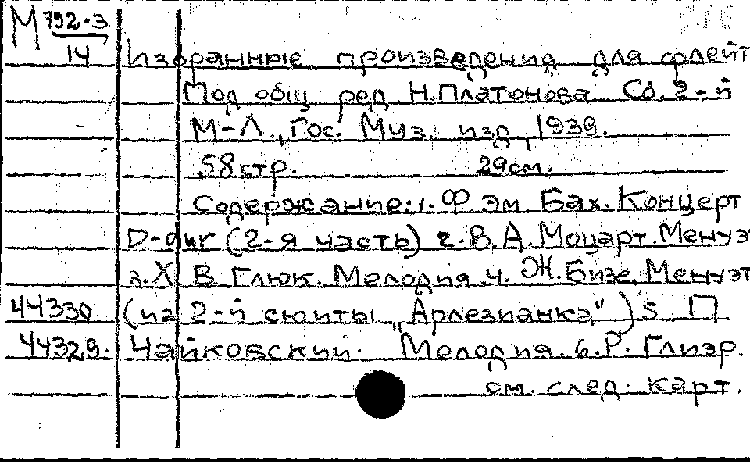 М 792-3
14
Избранные произведения для флейт
Под общ ред Н.Платонова Сб. 2-й
М-Л., Гос. Муз. изд, 1939.
58 стр. 29 см.
Содержание: 1. Ф эм Бах. Концерт
D-dur (2-я часть) 2. В. А Моцарт. Менуэт
3. Х В Глюк. Мелодия 4. Ж. Бизе. Менуэт
44330 (из 2-й сюиты „Арлезианка") 5 П
44329. Чайковский. Мелодия 6. Р. Глиэр.
см. след. карт.